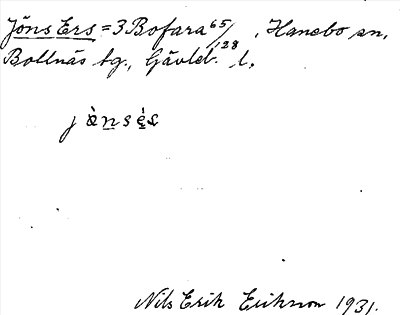 Jöns Ers = 3 Bofara 65/128, Hanebo sn,
Bollnäs tg., Gävleb. l.
Nils Erik Erikson 1931.